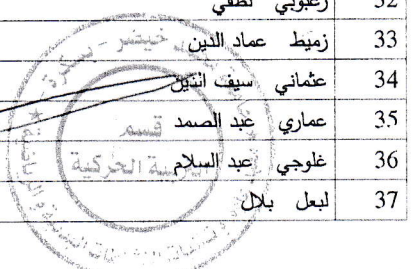 32 زعبوبي لطفي
33 زميط عماد الدين
34 عثماني سيف الدين
35 عماري عبد الصمد
36 غلوجي عبد السلام
37 لبعل بلال
خيضر - بسكرة
قسم
التربية الحركية